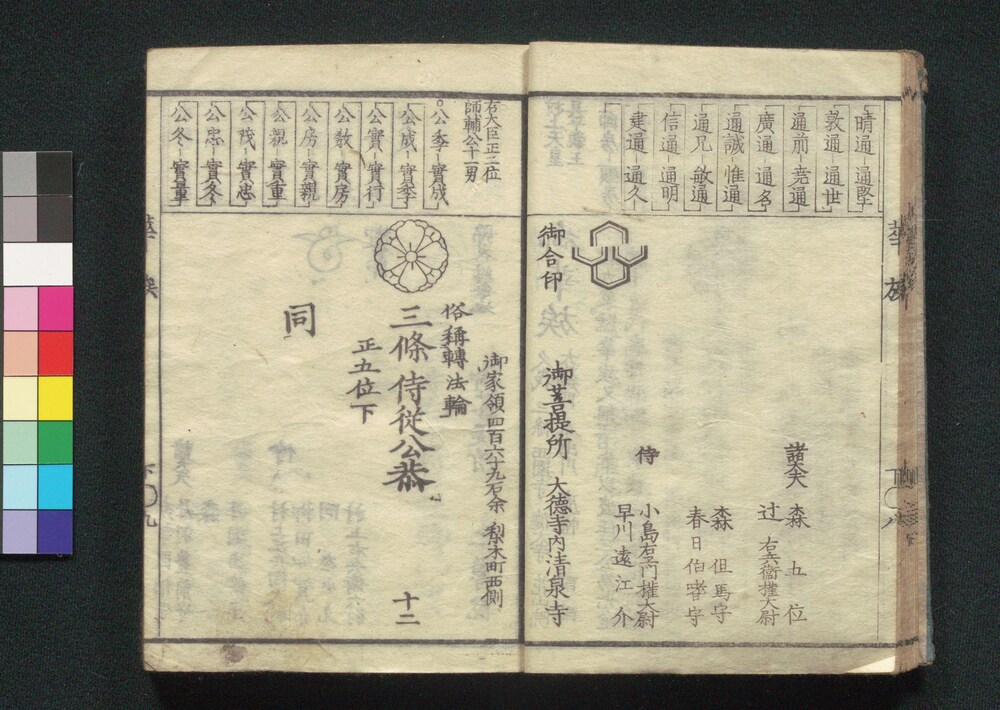 晴通－通堅
敦通－通世
通前－尭通
廣通－通名
通誠－惟通
通兄－敏通
信通－通明
建通－通久
諸大夫
森五位
辻右兵衞權大尉
森但馬守
春日伯耆守
侍
小島右衛門權大尉
早川遠江介
御合印
御菩提所 大徳寺内清泉寺
華族
右大臣正二位
師輔公十一男
公季－實成
公成－實季
公實－實行
公教－實房
公房－實親
公親－實重
公茂－實忠
公忠－實冬
公冬－實量
御家領四百六十九石余 梨木町西側
俗稱轉法輪
三條侍從公恭
正五位下
十二
同
華族